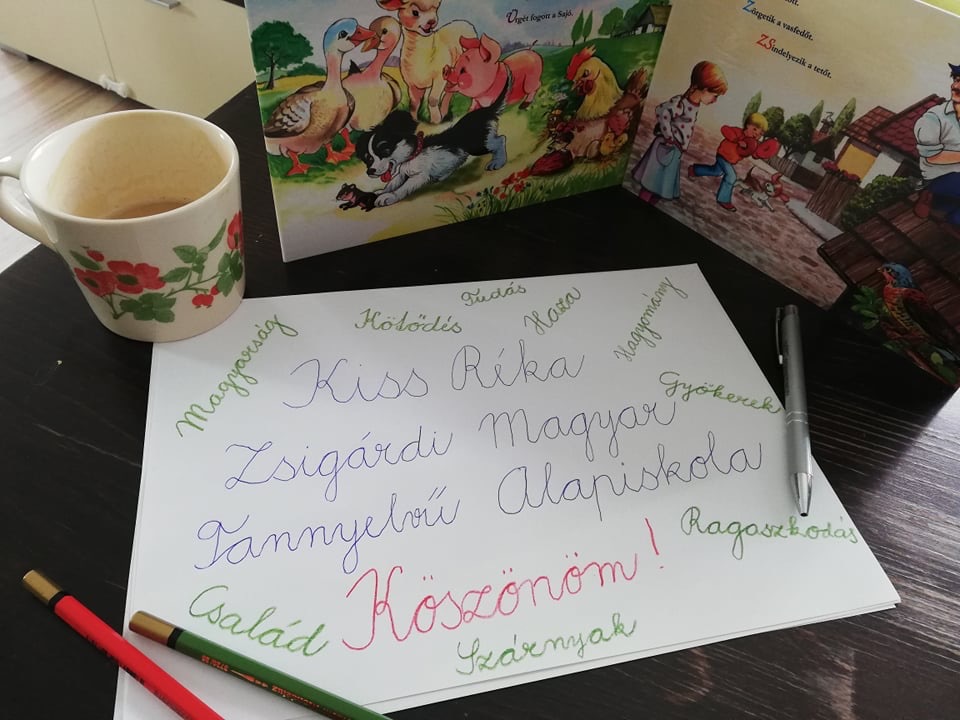 Ürgét fogott a Sajó.
Zörgetik a vasfedőt.
ZSindelyezik a tetőt.
Tudás
Haza
Hagyomány
Kötődés
Magyarság
Kiss Réka
Gyökerek
Zsigárdi Magyar
Tannyelvű Alapiskola
Ragaszkodás
Köszönöm!
Család
Szárnyak